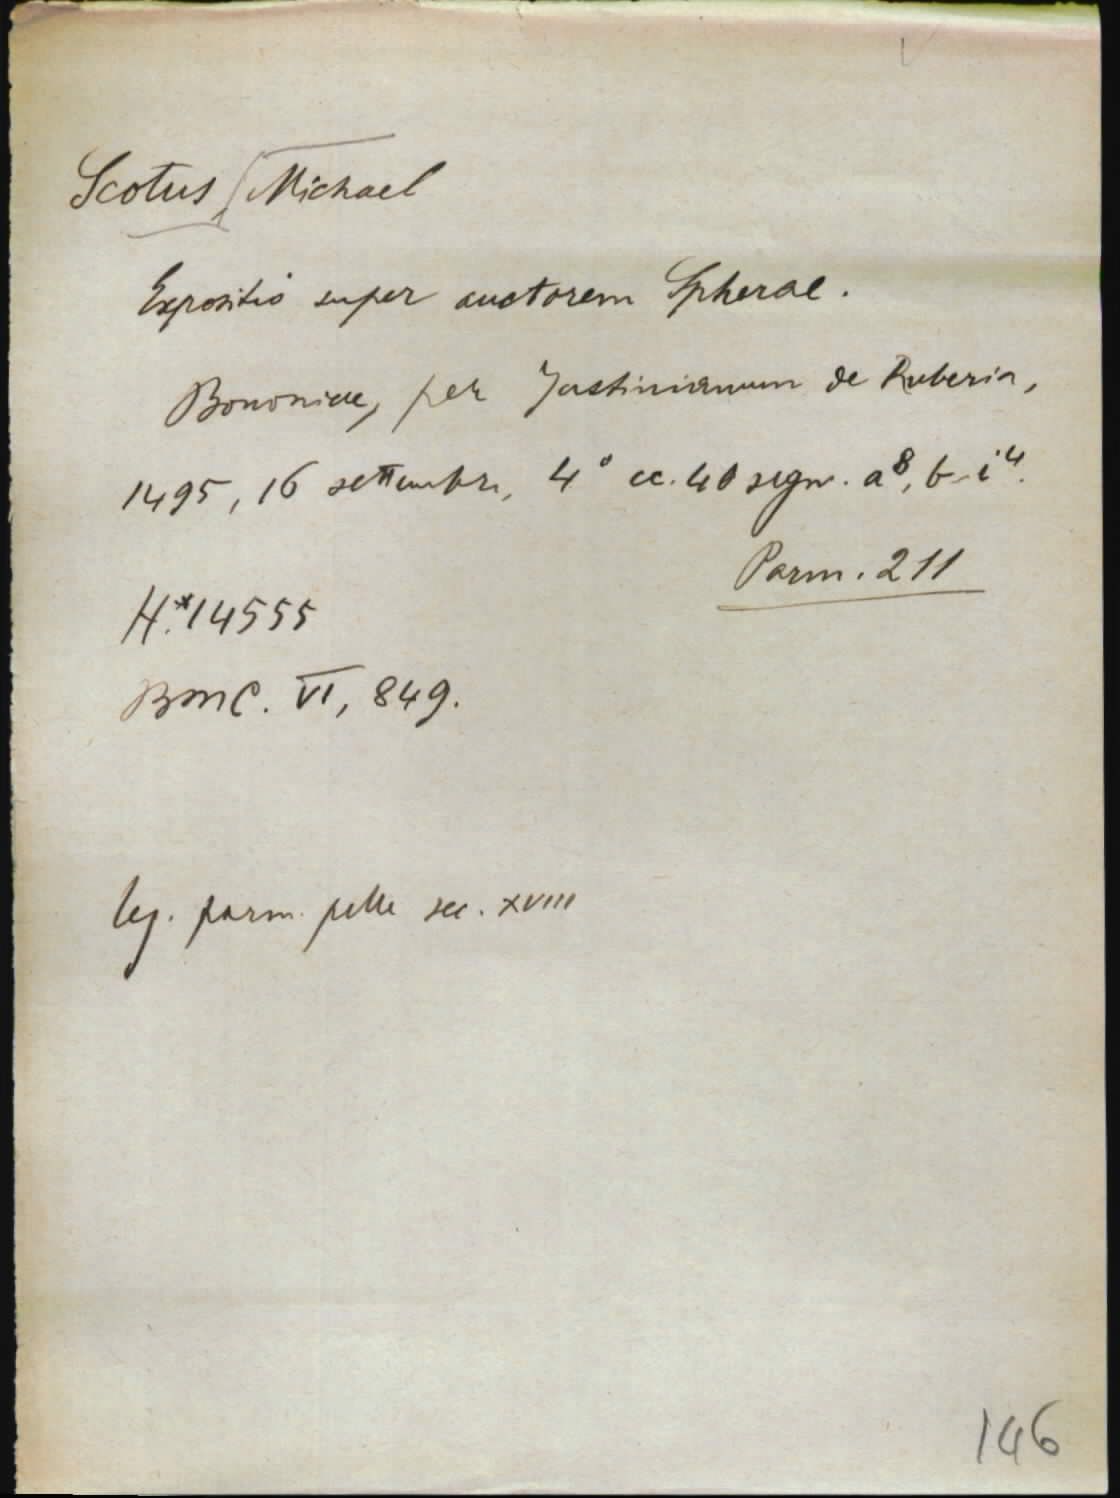 Scotus, Michael
Expositio super auctorem Spherae.
Bononiae, per Justinianum de Ruberia,
1495, 16 settembre, 4° cc. 40 segn. a⁸, b-i⁴.
Parm. 211
H.*14555
BMC. VI, 849.
leg. parm. pelle sec. XVIII
146